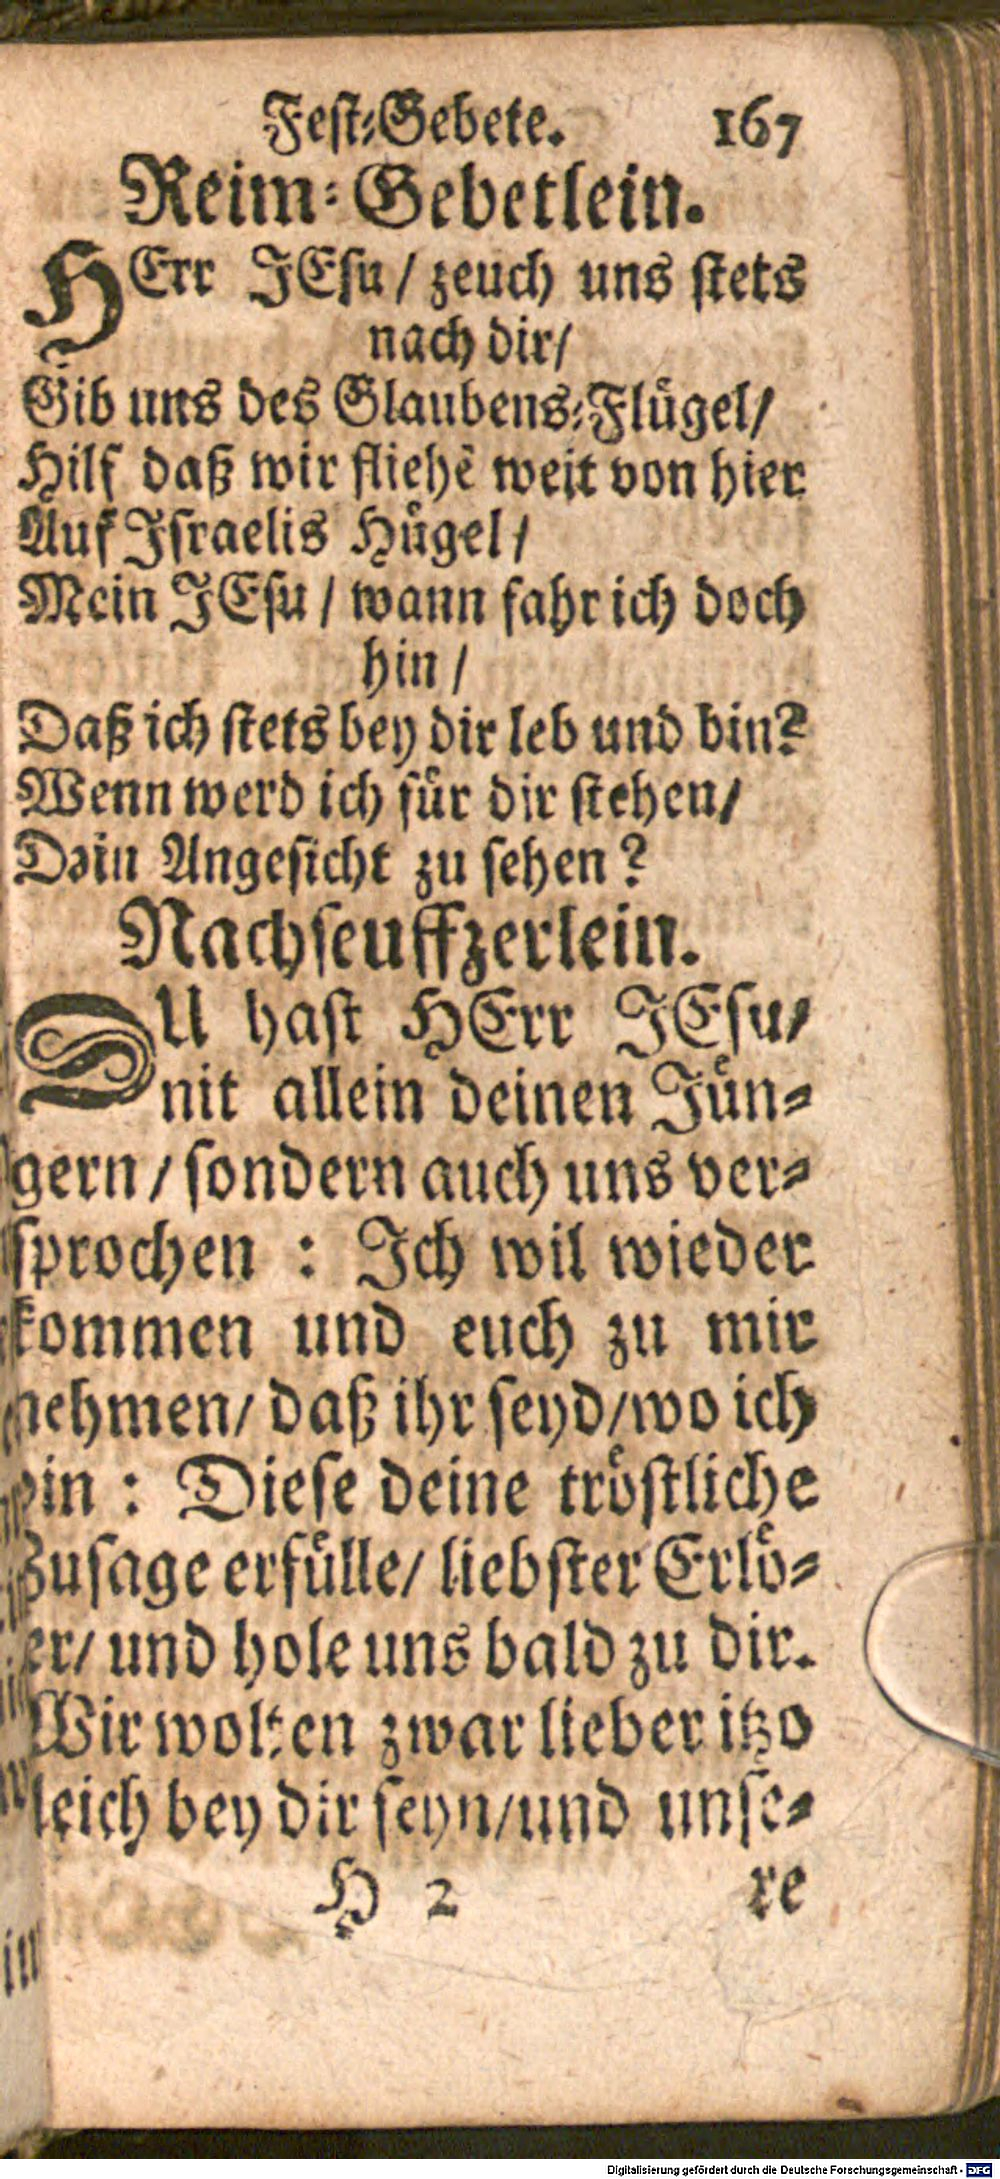 Fest-Gebete. 167
Reim-Gebetlein.
HErr JEsu / zeuch uns stets
nach dir/
Gib uns des Glaubens-Flügel/
Hilf daß wir fliehẽ weit von hier
Auf Israelis Hügel /
Mein JEsu / wann fahr ich doch
hin /
Daß ich stets bey dir leb und bin?
Wenn werd ich für dir stehen/
Dein Angesicht zu sehen?
Nachseuffzerlein.
DU hast HErr JEsu/
nit allein deinen Jün-
gern / sondern auch uns ver-
sprochen : Ich wil wieder
kommen und euch zu mir
nehmen/ daß ihr seyd/wo ich
bin : Diese deine tröstliche
Zusage erfülle/ liebster Erlö-
ser/ und hole uns bald zu dir.
Wir wolten zwar lieber itzo
leich bey dir seyn/und unse-
H 2 re
Digitalisierung gefördert durch die Deutsche Forschungsgemeinschaft - DFG